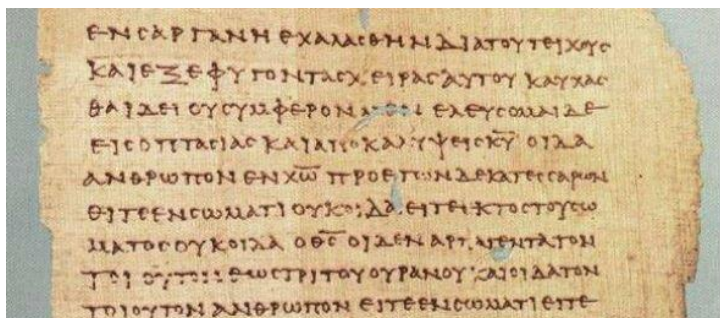 ΕΝϹΑΡΓΑΝΗΕΧΑΛΑϹΘΗΝΔΙΑΤΟΥΤΕΙΧΟΥϹ
ΚΑΙΕΞΕΦΥΓΟΝΤΑϹΧΕΙΡΑϹΑΥΤΟΥΚΑΥΧΑϹ
ΘΑΙΔΕΙΟΥϹΥΜΦΕΡΟΝΜΕΝΕΛΕΥϹΟΜΑΙΔΕ
ΕΙϹΟΠΤΑϹΙΑϹΚΑΙΑΠΟΚΑΛΥΨΕΙϹΚ̅Υ̅ΟΙΔΑ
ΑΝΘΡΩΠΟΝΕΝΧ̅Ω̅ΠΡΟΕΤΩΝΔΕΚΑΤΕϹϹΑΡΩΝ
ΕΙΤΕΕΝϹΩΜΑΤΙΟΥΚΟΙΔΑΕΙΤΕΕΚΤΟϹΤΟΥϹΩ
ΜΑΤΟϹΟΥΚΟΙΔΑΟΘ̅Ϲ̅ΟΙΔΕΝΑΡΠΑΓΕΝΤΑΤΟΝ
ΤΟΙΟΥΤΟΝΕΩϹΤΡΙΤΟΥΟΥΡΑΝΟΥΚΑΙΟΙΔΑΤΟΝ
ΤΟΙΟΥΤΟΝΑΝΘΡΩΠΟΝΕΙΤΕΕΝϹΩΜΑΤΙΕΙΤΕ